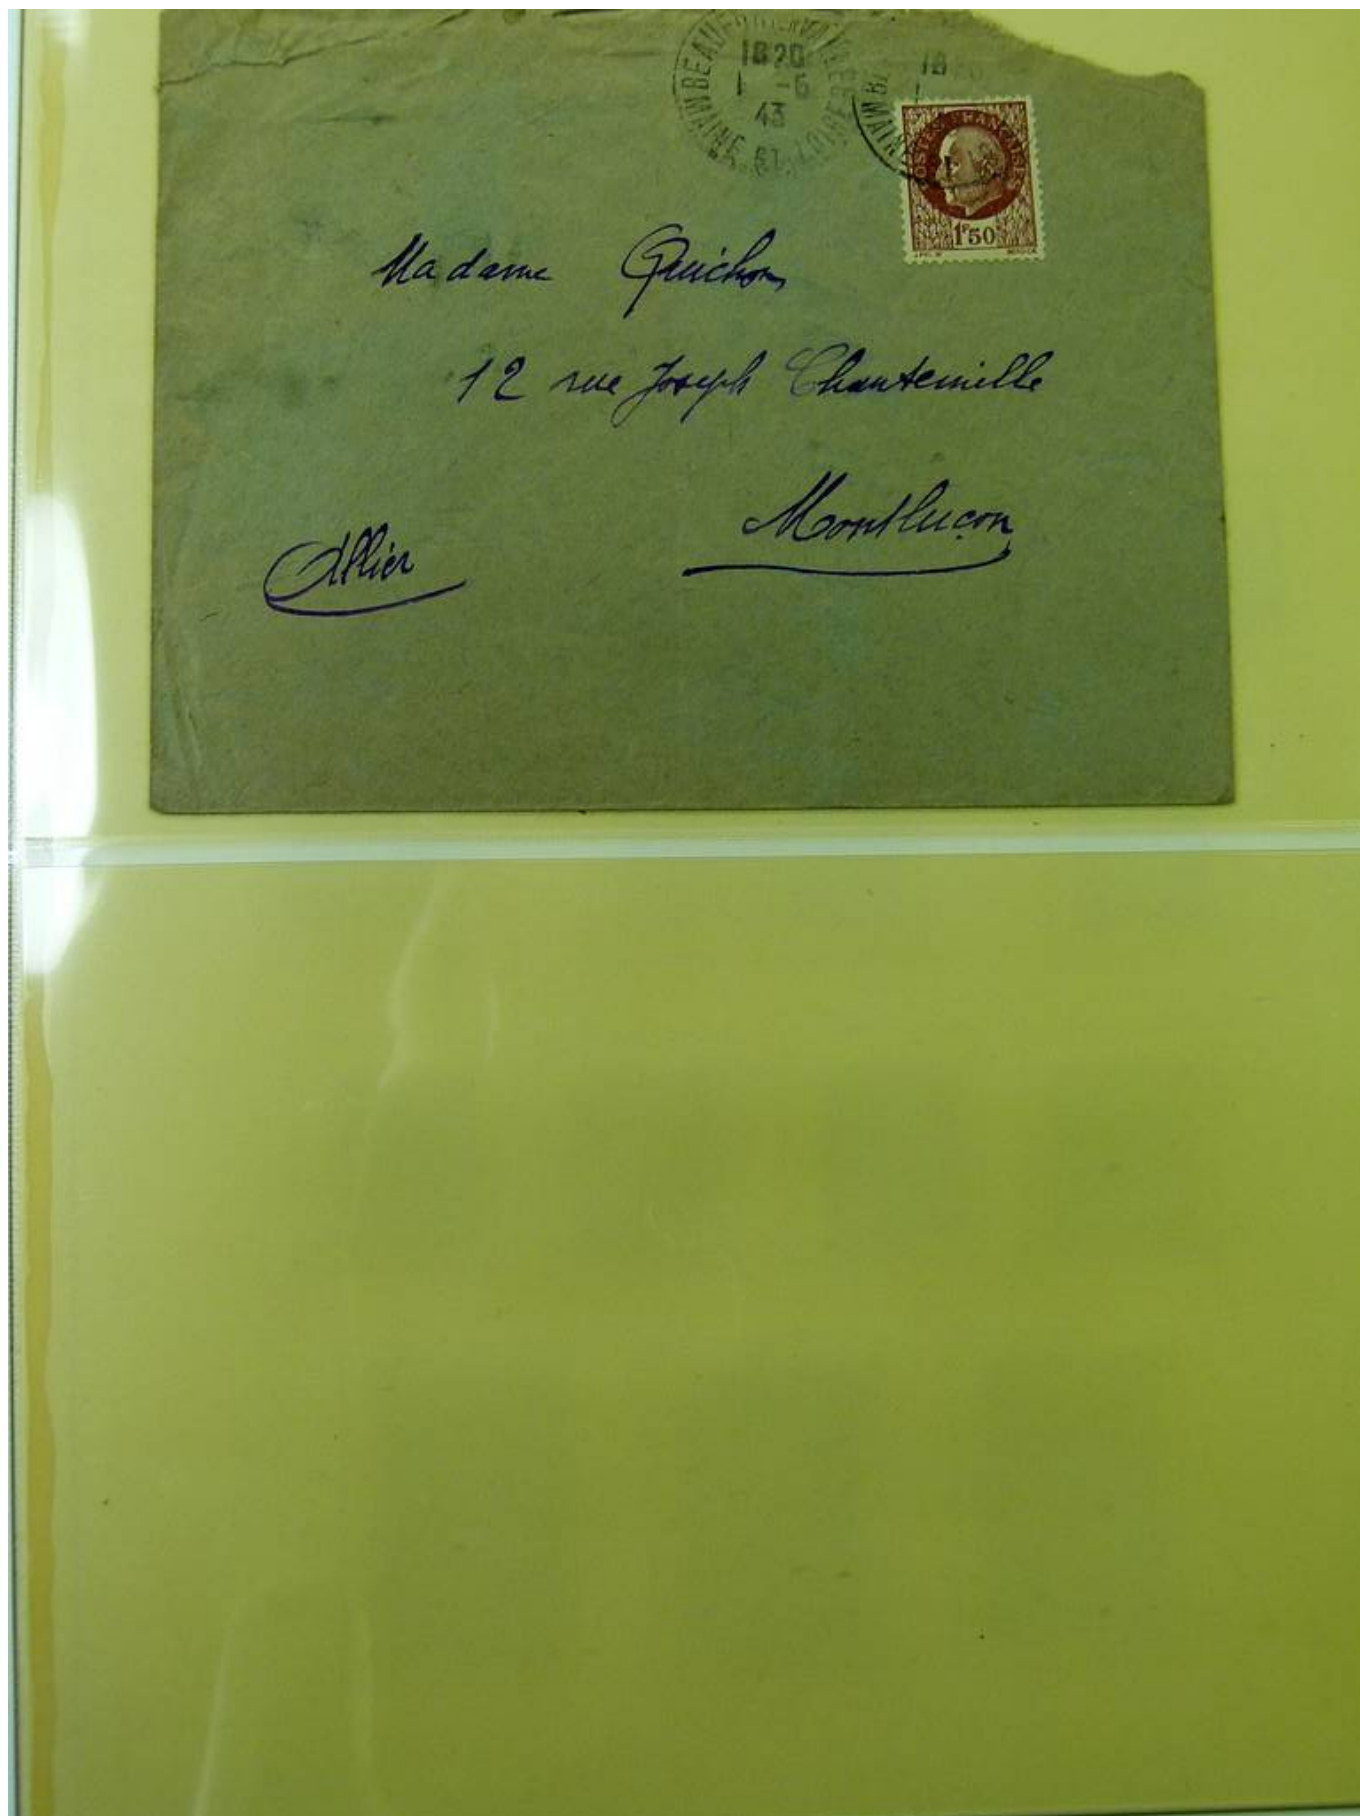 18 20
1 -6
43
18 20
POSTES FRANÇAISES
1F50
Madame Guichon
12 rue Joseph Chantemille
Montluçon
Allier